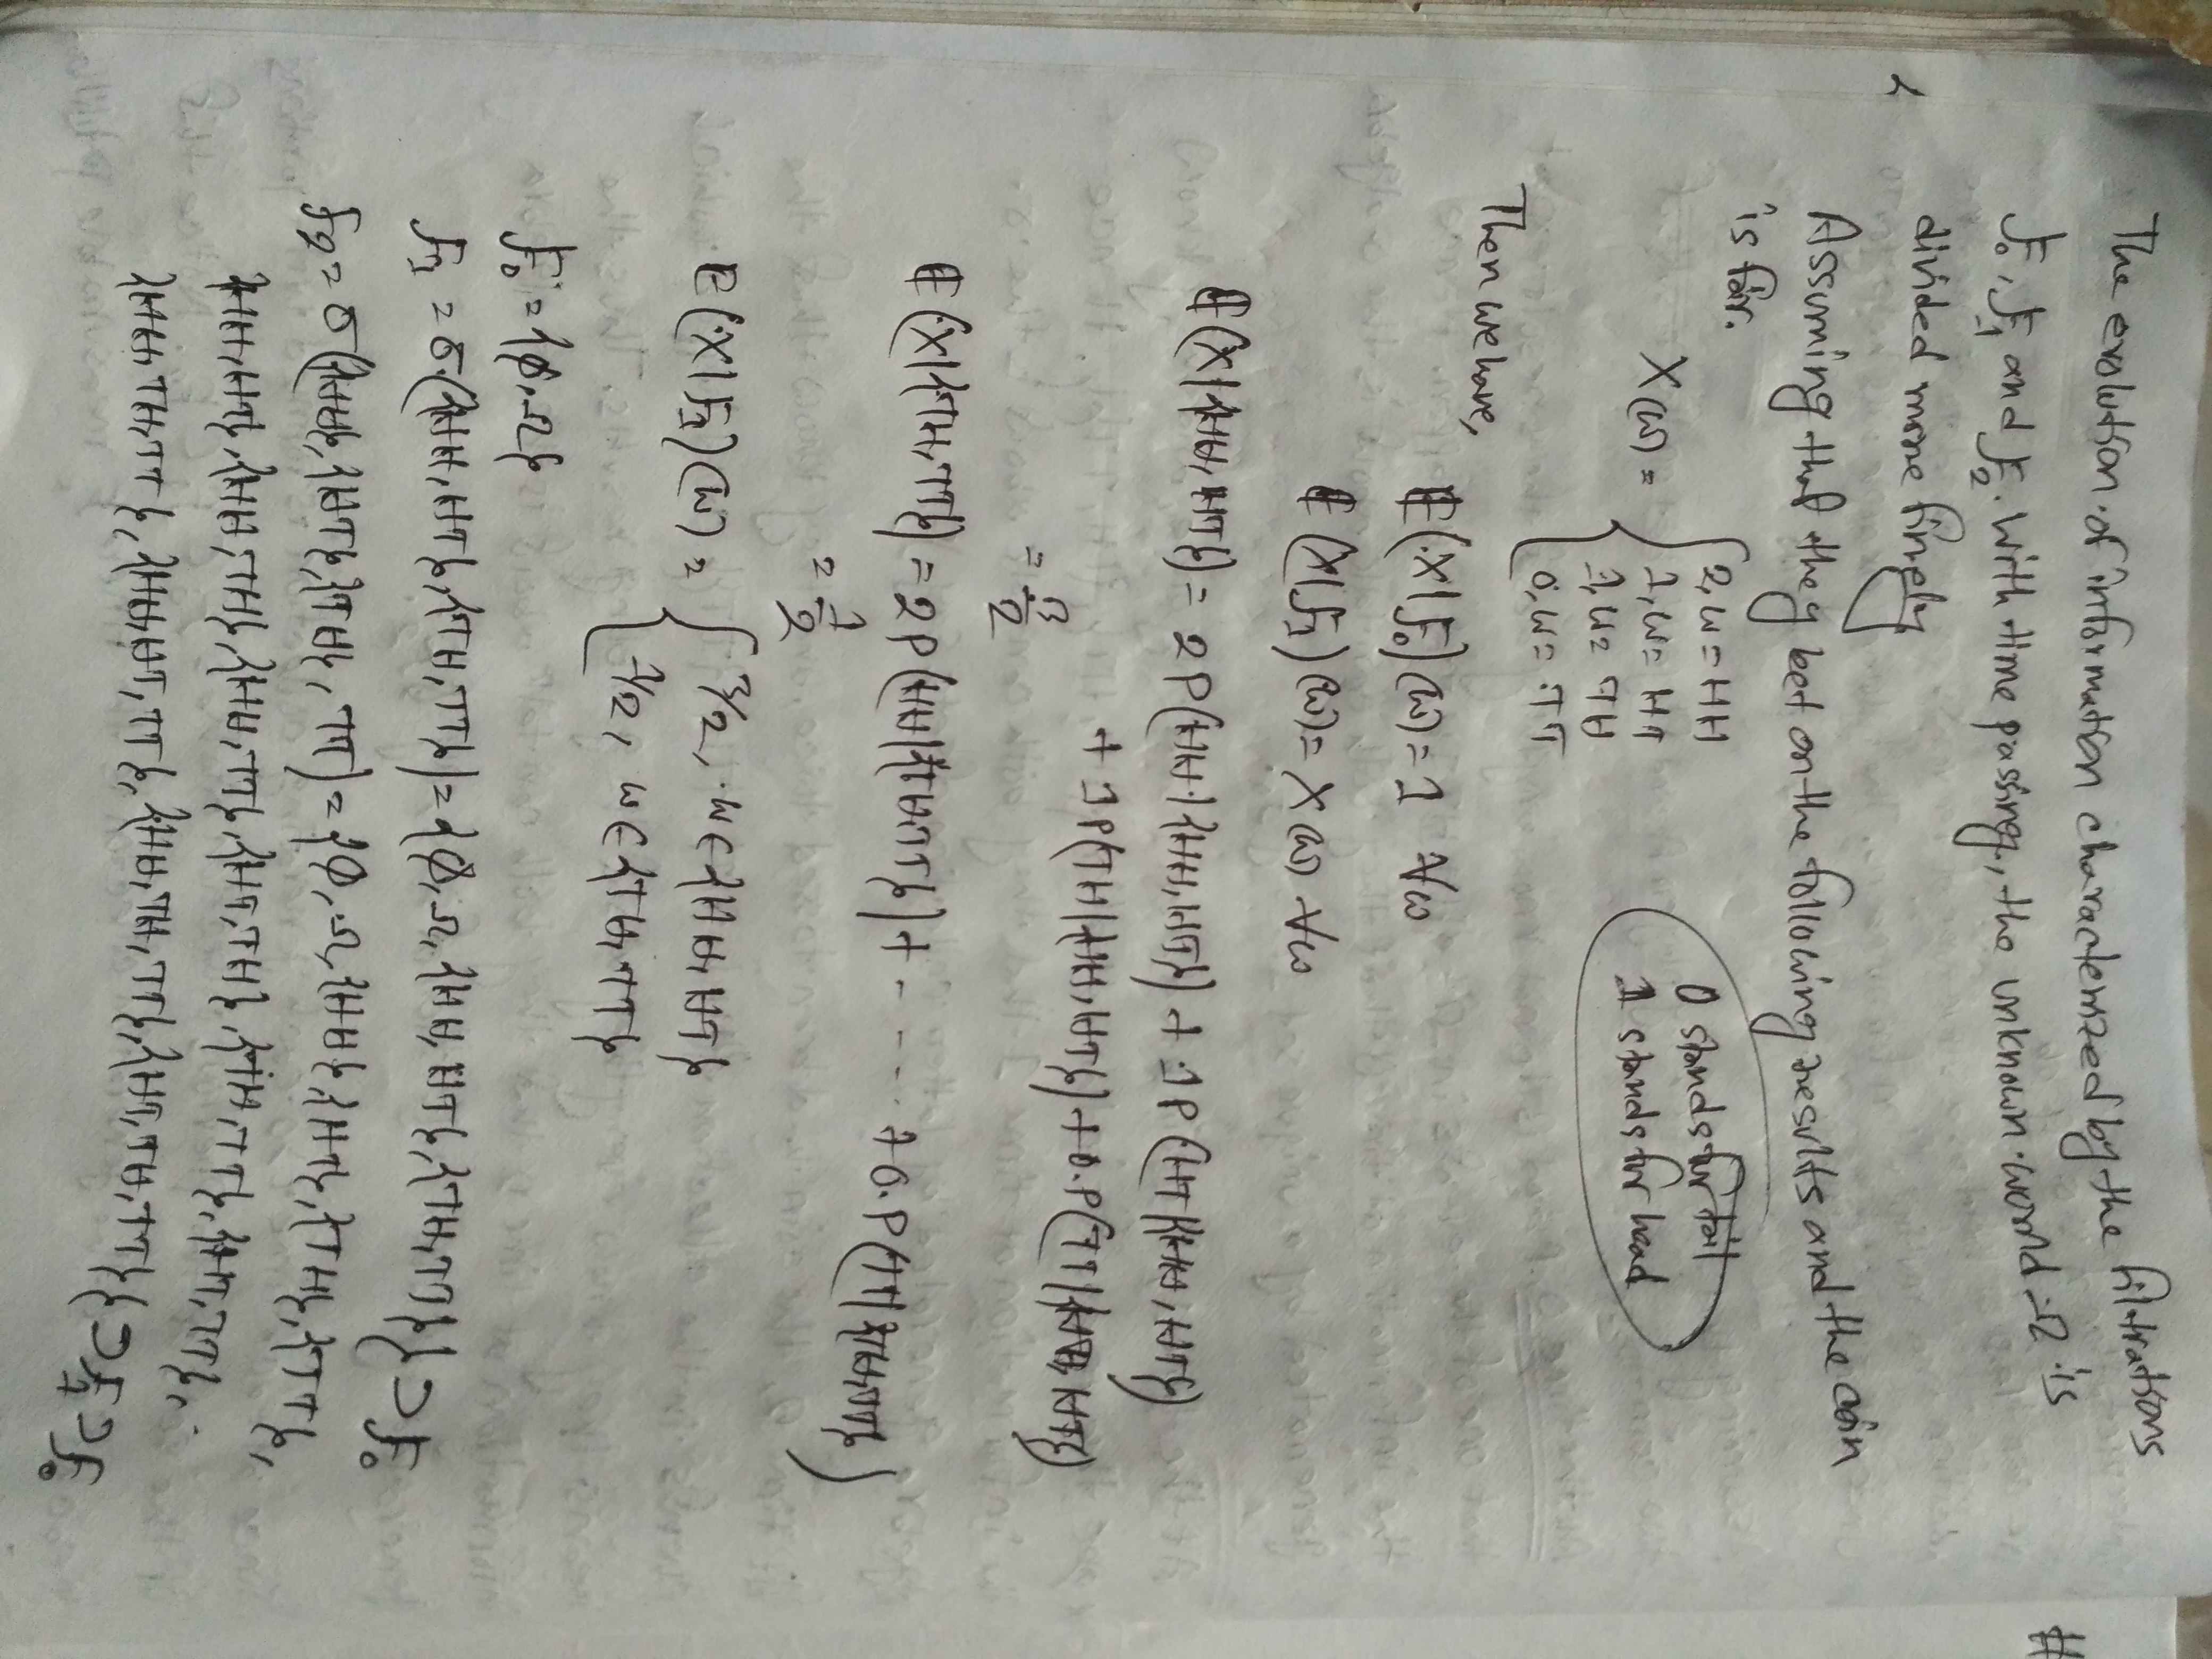 The evolution of information characterized by the filtrations
F₀, F₁ and F₂. With time passing, the unknown world Ω is
divided more finely
Assuming that they bet on the following results and the coin
is fair.
X(ω) = { 2, ω = HH
1, ω = HT
1, ω = TH
0, ω = TT
0 stands for tail
1 stands for head
Then we have,
E(X|F₀)(ω) = 1 ∀ω
E(X|F₂)(ω) = X(ω) ∀ω
E(X|{HH, HT}) = 2P(HH|{HH, HT}) + 1P(HT|{HH, HT})
+ 1P(TH|{HH, HT}) + 0.P(TT|{HH, HT})
= 3/2
E(X|{TH, TT}) = 2P(HH|{TH, TT}) + - - - - - + 0.P(TT|{TH, TT})
= 1/2
E(X|F₁)(ω) = { 3/2, ω ∈ {HH, HT}
1/2, ω ∈ {TH, TT}
F₀ = {φ, Ω}
F₁ = σ({HH, HT}, {TH, TT}) = {φ, Ω, {HH, HT}, {TH, TT}} ⊃ F₀
F₂ = σ({HH}, {HT}, {TH}, TT) = {φ, Ω, {HH}, {HT}, {TH}, {TT},
{HH, HT}, {HH, TH}, {HH, TT}, {HT, TH}, {TH, TT}, {HT, TT},
{HH, TH, TT}, {HH, HT, TT}, {HH, TH, TT}, {HT, TH, TT}} ⊃ F₁ ⊃ F₀
#